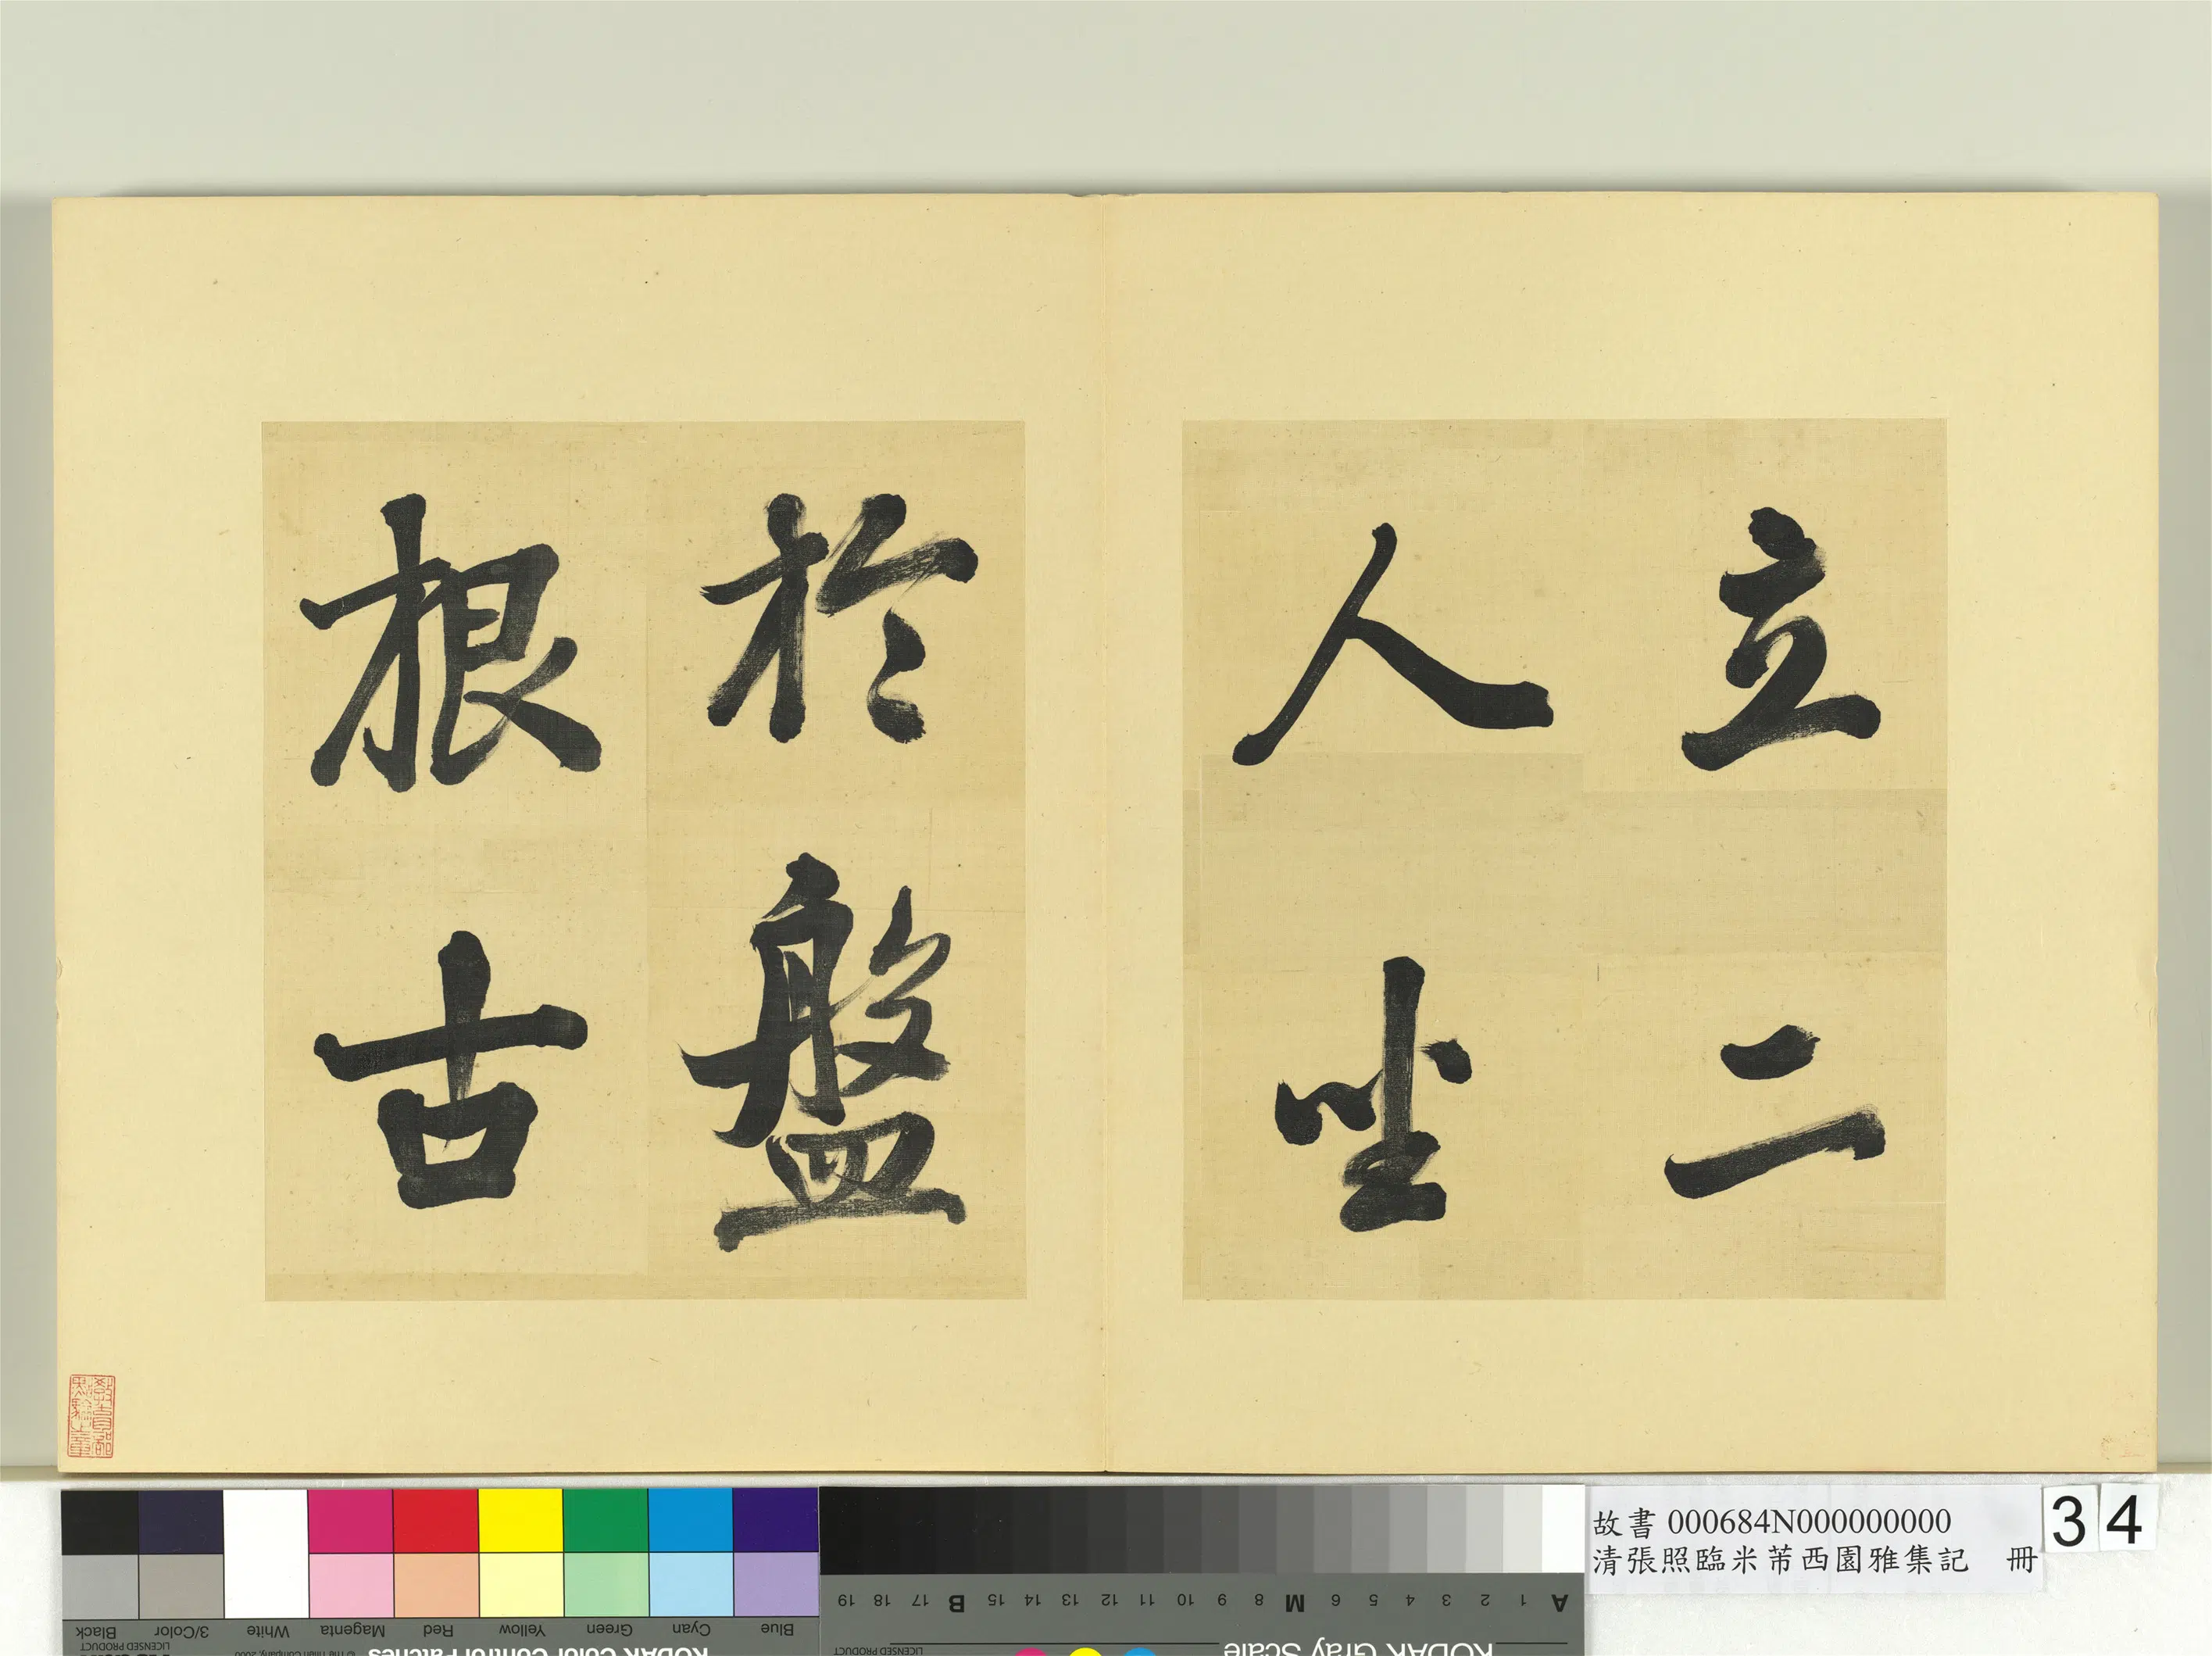 立二
人坐
於盤
根古
教育部
點驗之章
故書 000684N000000000
清張照臨米芾西園雅集記 冊
34
Black 3/Color White Magenta Red Yellow Green Cyan Blue
LICENSED PRODUCT
KODAK Color Control Patches
A 1 2 3 4 5 6 M 8 9 10 11 12 13 14 15 B 17 18 19
KODAK Gray Scale
LICENSED PRODUCT